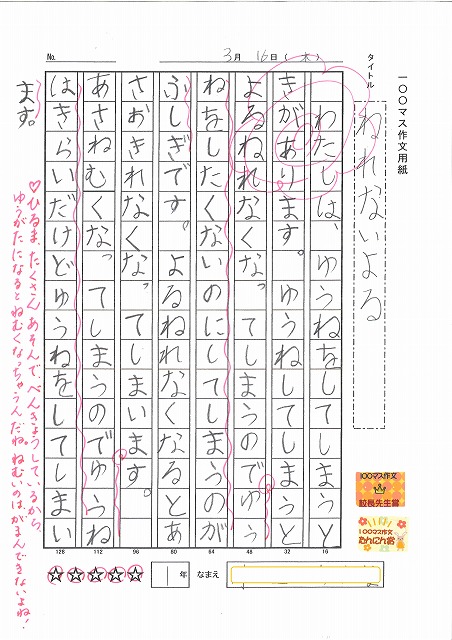 一〇〇マス作文用紙
タイトル
ねれないよる
No.
3月16日(木)
わたしは、ゆうねをしてしまうと
きがあります。ゆうねしてしまうと
よるねれなくなってしまうのでゆう
ねをしたくないのにしてしまうのが
ふしぎです。よるねれなくなるとあ
さおきれなくなってしまいます。
あさねむくなってしまうのでゆうね
はきらいだけどゆうねをしてしまい
ます。
♡ひるま、たくさんあそんで、べんきょうしているから、
ゆうがたになるとねむくなっちゃうんだね。ねむいのは、がまんできないよね!
16
32
48
64
80
96
112
128
100マス作文
校長先生賞
100マス作文
たんにん賞
1年
なまえ